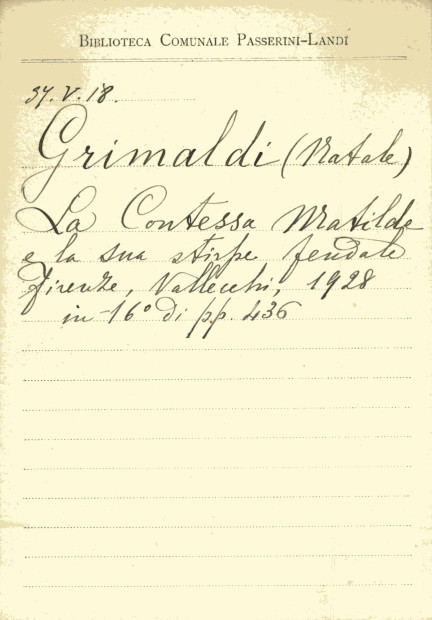 BIBLIOTECA COMUNALE PASSERINI-LANDI
37.V.18.
Grimaldi (Natale)
La Contessa Matilde
e la sua stirpe feudale
Firenze, Vallecchi, 1928
in-16° di pp. 436